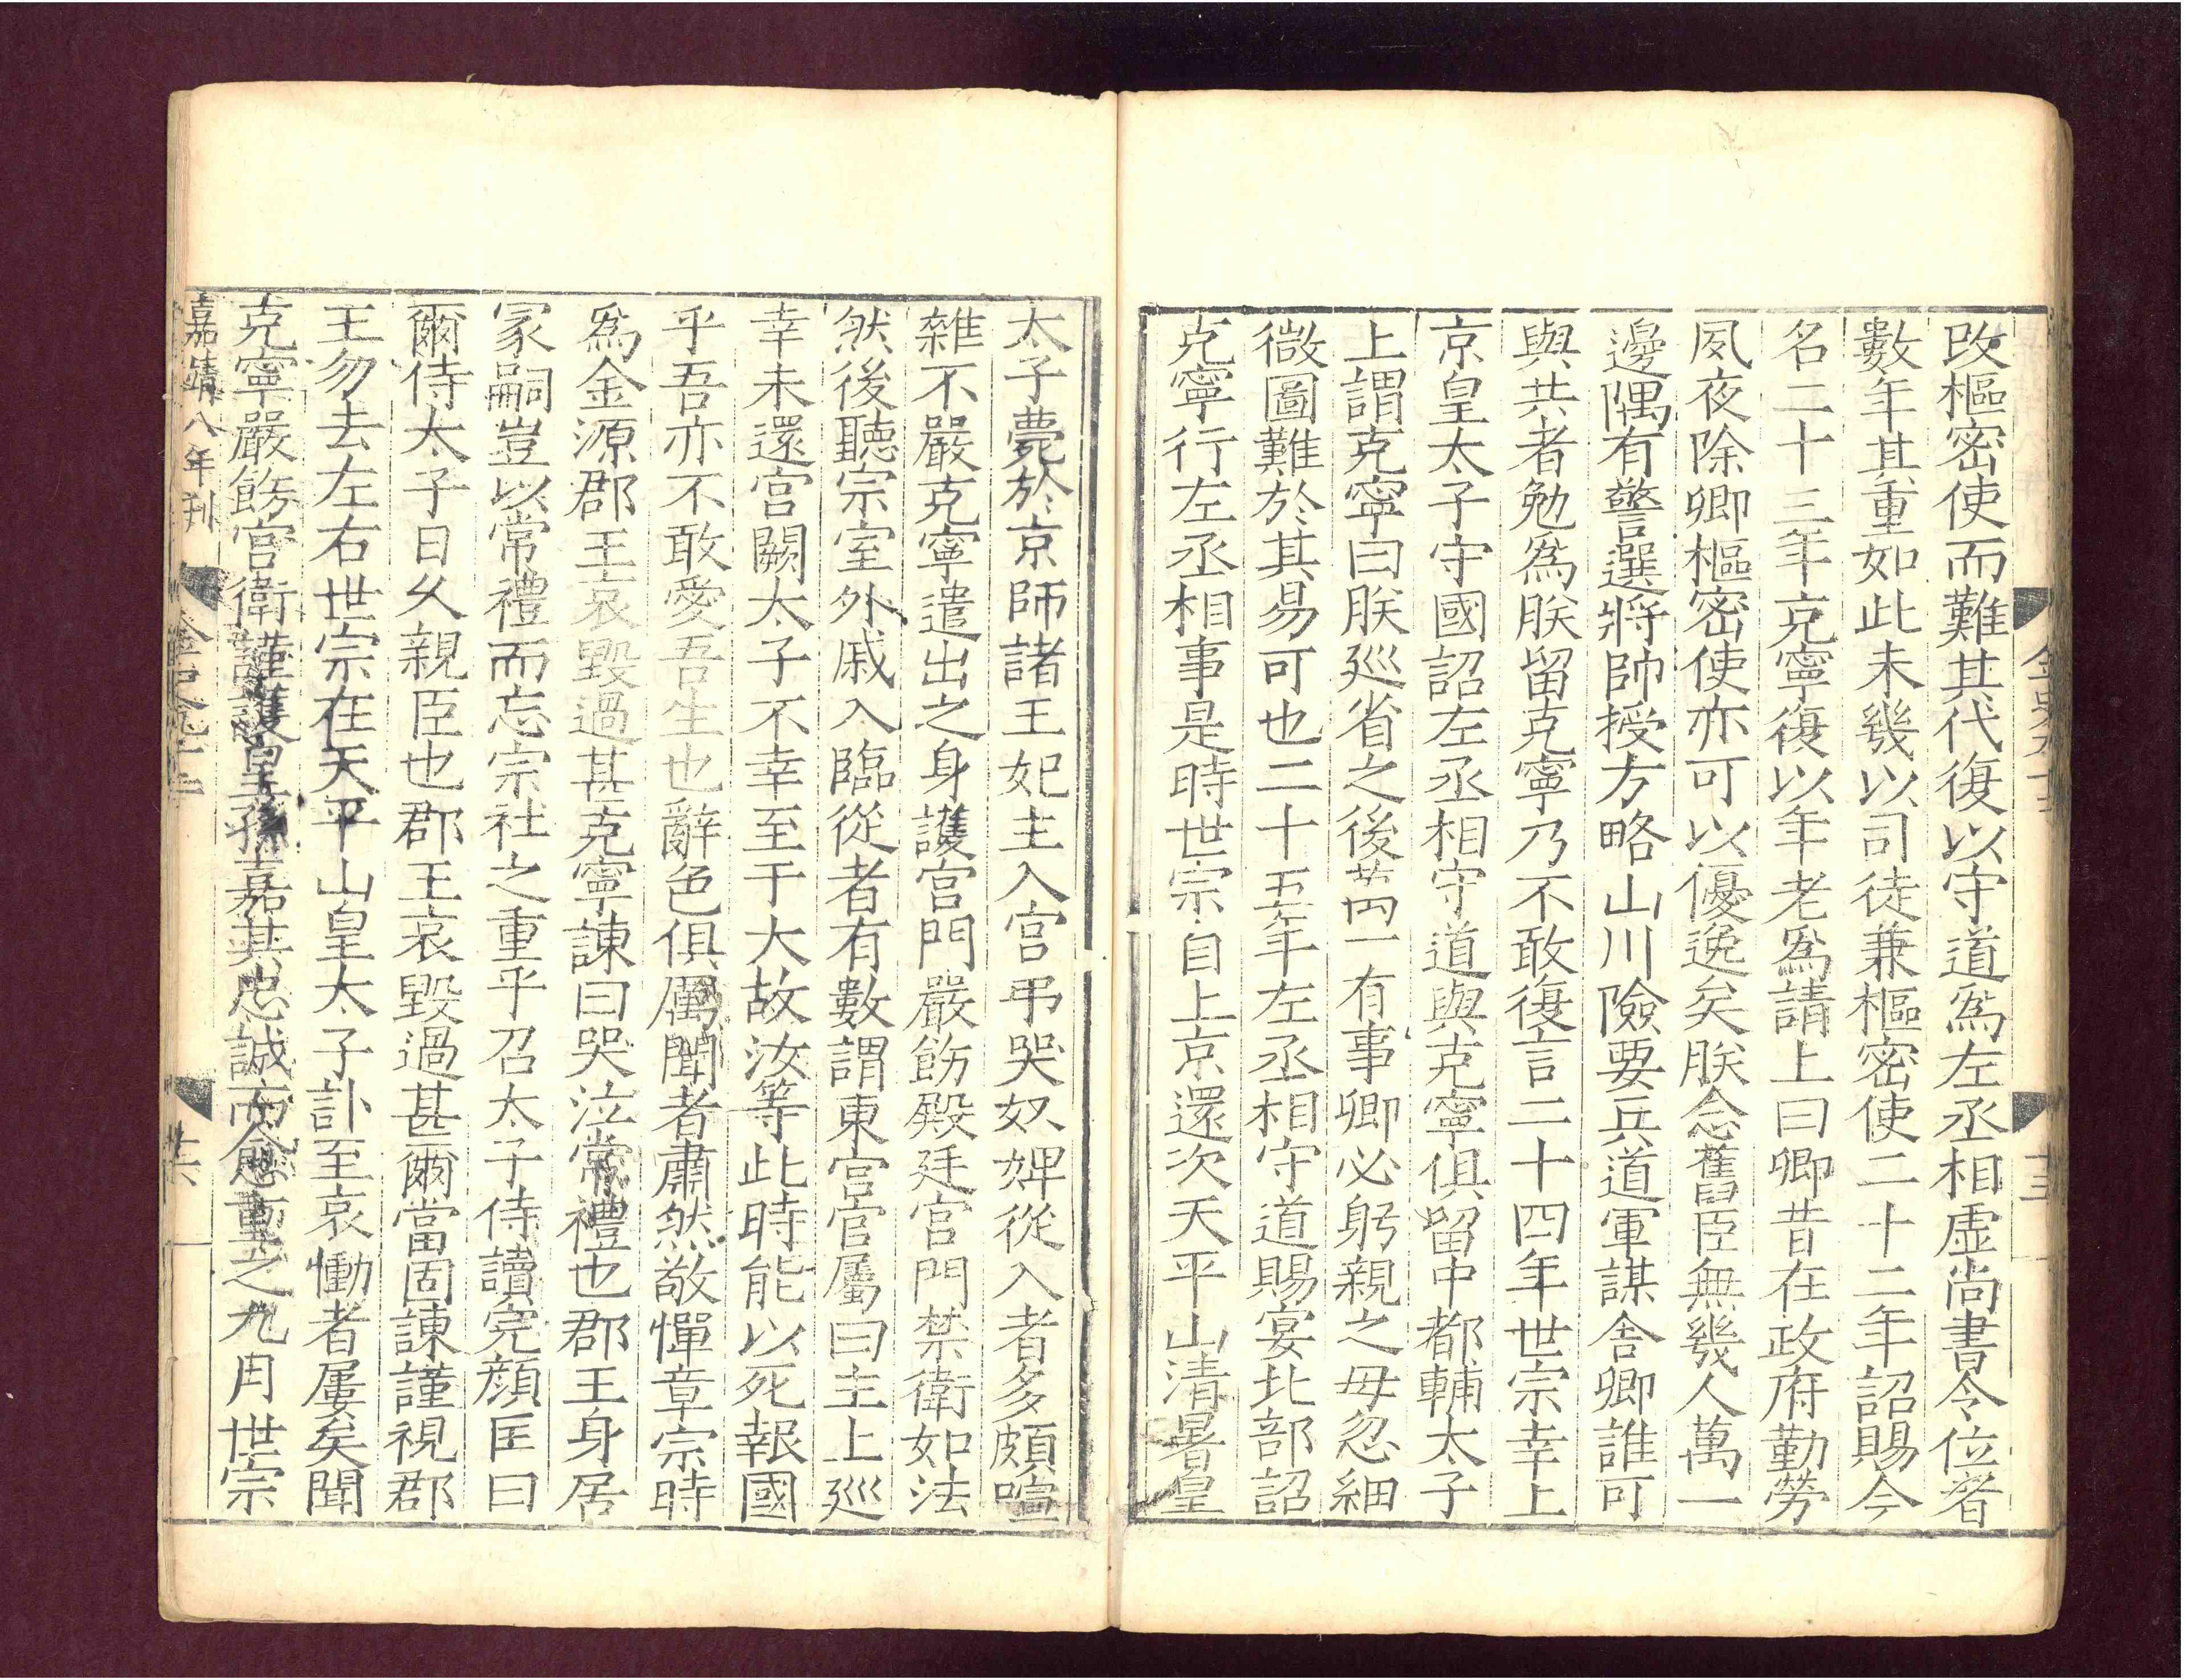 改樞密使而難其代復以守道爲左丞相虛尚書令位者
數年其重如此未幾以司徒兼樞密使二十二年詔賜今
名二十三年克寧復以年老爲請上曰卿昔在政府勤勞
夙夜除卿樞密使亦可以優逸矣朕念舊臣無幾人萬一
邊隅有警選將帥授方略山川險要兵道軍謀舍卿誰可
與共者勉爲朕留克寧乃不敢復言二十四年世宗幸上
京皇太子守國詔左丞相守道與克寧俱留中都輔太子
上謂克寧曰朕巡省之後萬一有事卿必躬親之毋忽細
微圖難於其易可也二十五年左丞相守道賜宴北部詔
克寧行左丞相事是時世宗自上京還次天平山清暑皇
太子薨於京師諸王妃主入宮弔哭奴婢從入者多頗喧
雜不嚴克寧遣出之身護宮門嚴飭殿廷宮門禁衛如法
然後聽宗室外戚入臨從者有數謂東宮官屬曰主上巡
幸未還宮闕太子不幸至于大故汝等此時能以死報國
乎吾亦不敢愛吾生也辭色俱厲聞者肅然敬憚章宗時
爲金源郡王哀毀過甚克寧諫曰哭泣常禮也郡王身居
冢嗣豈以常禮而忘宗社之重乎召太子侍讀完顏匡曰
爾侍太子日久親臣也郡王哀毀過甚爾當固諫謹視郡
王勿去左右世宗在天平山皇太子訃至哀慟者屢矣聞
克寧嚴飭宮衛謹護皇孫嘉其忠誠而愈重之九月世宗
嘉靖八年刊 金史九十二 十六